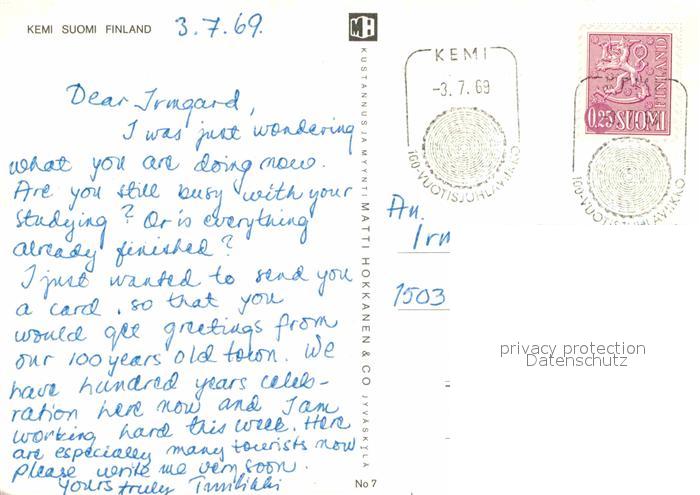 KEMI SUOMI FINLAND
3.7.69.
Dear Irmgard,
I was just wondering
what you are doing now.
Are you still busy with your
studying? Or is everything
already finished?
I just wanted to send you
a card, so that you
would get greetings from
our 100 years old town. We
have hundred years celeb-
ration here now and I am
working hard this week. Here
are especially many tourists now
Please write me very soon.
Yours truly Tuulikki
MH
KUSTANNUS JA MYYNTI MATTI HOKKANEN & CO JYVÄSKYLÄ
No 7
KEMI
-3.7.69
100-VUOTISJUHLAVIIKKO
0,25 SUOMI
FINLAND
100-VUOTISJUHLAVIIKKO
An.
Irm
1503
privacy protection
Datenschutz